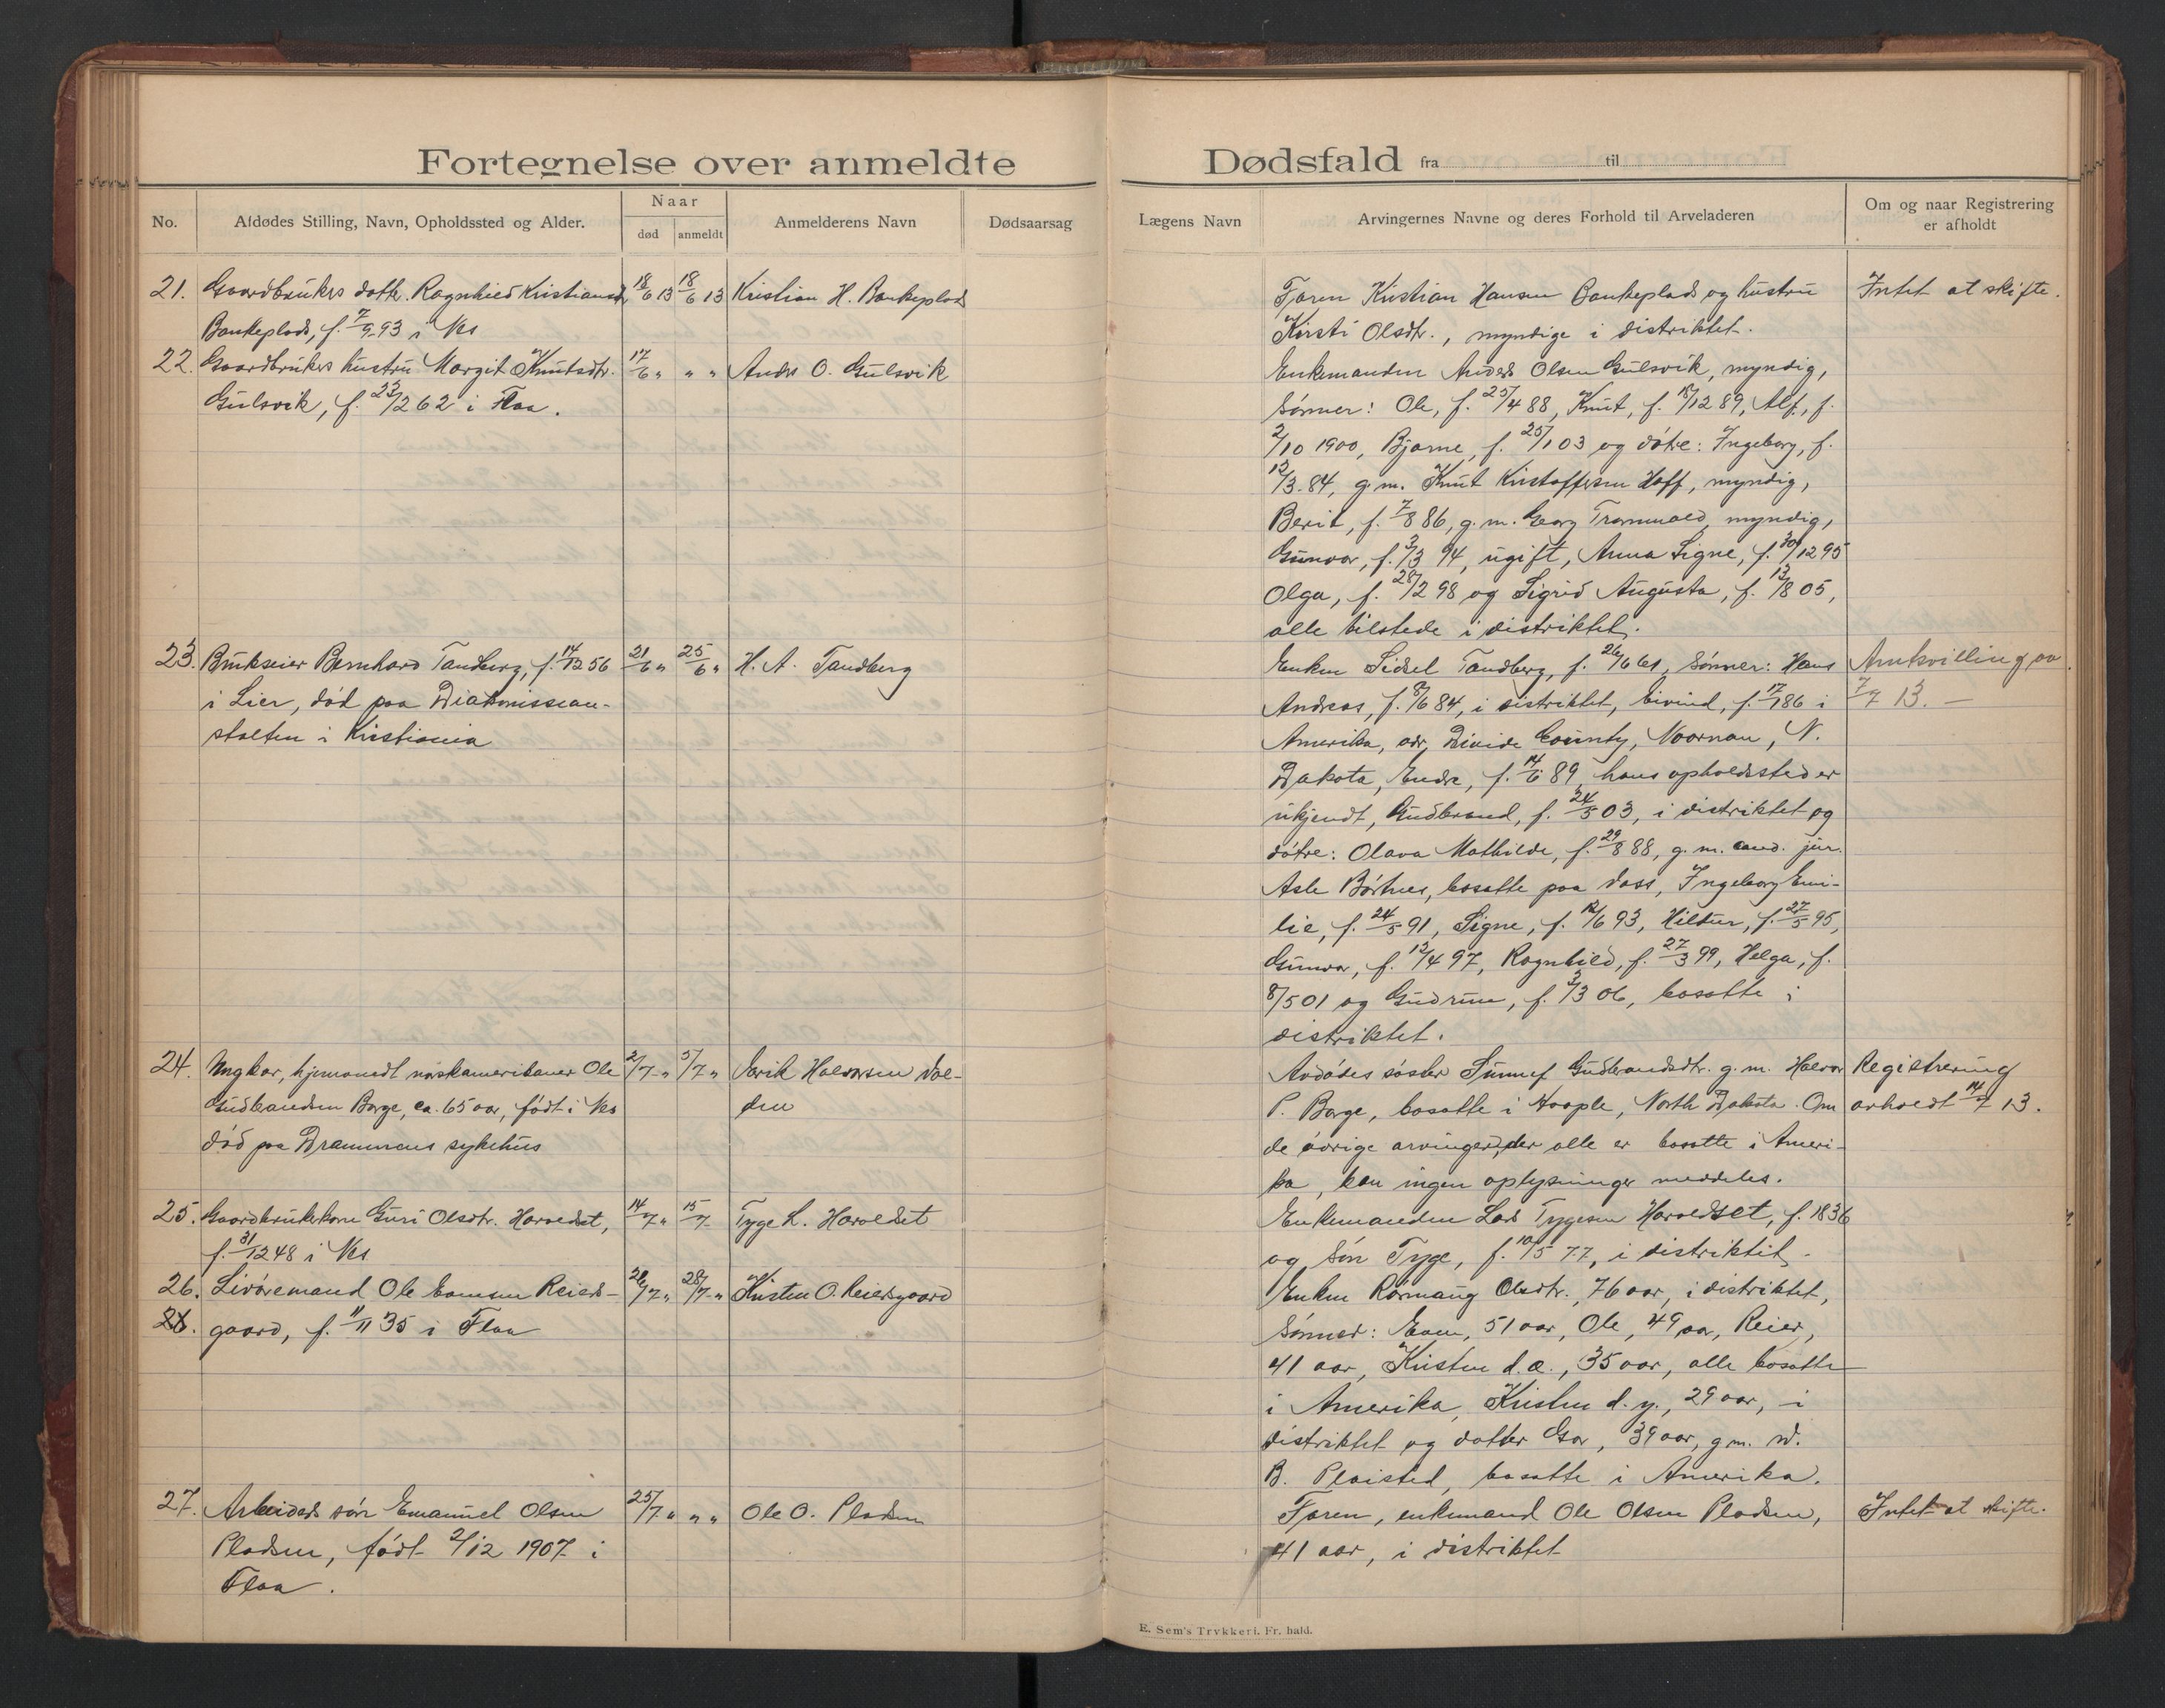 Fortegnelse over anmeldte
Dødsfald fra til
No.
Afdødes Stilling, Navn, Opholdssted og Alder.
Naar
død
anmeldt
Anmelderens Navn
Dødsaarsag
Lægens Navn
Arvingernes Navne og deres Forhold til Arveladeren
Om og naar Registrering
er afholdt
21. Gaardbrukers datter Ragnhild Kristiansd. 18/6 13 18/6 13 Kristian H. Bankeplads
Bankeplads, f. 7/9 93 i Nes
Faren Kristian Hansen Bankeplads og hustru
Kirsti Olsdtr., myndige i distriktet.
Intet at skifte.
22. Gaardbrukers hustru Margit Knutsdtr. 17/6 " " " Anders O. Gulsvik
Gulsvik, f. 23/2 62 i Flaa.
Enkemanden Anders Olsen Gulsvik, myndig,
Sønner: Ole, f. 25/4 88, Knut, f. 18/12 89, Alf, f.
2/10 1900, Bjarne, f. 25/1 03 og døtre: Ingeborg, f.
12/3 84, g.m. Knut Kristoffersen Hoff, myndig,
Berit, f. 7/8 86, g.m. Georg myndig,
Gunvor, f. 3/3 94, ugift, Anna Signe, f. 30/12 95
Olga, f. 28/2 98 og Sigrid Augusta, f. 13/8 05,
alle tilstede i distriktet.
23. Brukseier Bernhard Tandberg, f. 14/12 56 21/6 " 25/6 " H. A. Tandberg
i Lier, død paa Diakonissean-
stalten i Kristiania
Enken Sidsel Tandberg, f. 26/6 61, Sønner: Hans
Andreas, f. 8/6 84, i distriktet, Eivind, f. 17/7 86 i
Amerika, adr. Divide County, N.
Dakota, Endre, f. 14/6 89 hans opholdssted er
ukjendt, Gudbrand, f. 24/5 03, i distriktet og
døtre: Olava Mathilde, f. 29/8 88, g.m. cand. jur.
Asle Børtnes, bosatte paa Voss, Ingeborg Emi-
lie, f. 24/5 91, Signe, f. 12/6 93, Hildur, f. 27/5 95,
Gunvor, f. 13/4 97, Ragnhild, f. 27/3 99, Helga, f.
8/5 01 og Gudrun, f. 3/3 06, bosatte i
distriktet.
7/7 13. –
24. Ungkar, hjemvendt norskamerikaner Ole 2/7 " 5/7 " Eerik Halvorsen Vol-
Gudbrandsen Borge, ca. 65 aar, født i Nes den
død paa Drammens sykehus
Avdødes søster Sunnef Gudbrandsdtr. g.m. Halvor
P. Borge, bosatte i Hoople, North Dakota. Om
de øvrige arvinger, der alle er bosatte i Ameri-
ka, kan ingen oplysninger meddeles.
Registrering
avholdt 14/7 13.
25. Gaardbrukerkone Guri Olsdtr. Haroldset, 14/7 " 15/7 Tyge L. Haroldset
f. 31/12 48 i Nes
Enkemanden Lars Tygesen Haroldset, f. 1836
og Søn Tyge, f. 10/5 77, i distriktet.
26. Livøremand Ole Evensen Reiers- 26/7 " 28/7 " Kristen O. Reiersgaard
26. gaard, f. 11/11 35 i Flaa
Enken Rønnaug Olsdtr., 76 aar, i distriktet,
Sønner: Even, 51 aar, Ole, 49 aar, Reier,
41 aar, Kristen d.æ., 35 aar, alle bosatte
i Amerika, Kristen d.y., 29 aar, i
distriktet og datter Gor, 39 aar, g.m. W.
B. Plaisted, bosatte i Amerika.
27. Arbeiders søn Emanuel Olsen 25/7 " " " Ole O. Pladsen
Pladsen, født 2/12 1907 i
Flaa.
Faren, enkemand Ole Olsen Pladsen,
41 aar, i distriktet
Intet at skifte.
E. Sem's Trykkeri. Fr. hald.